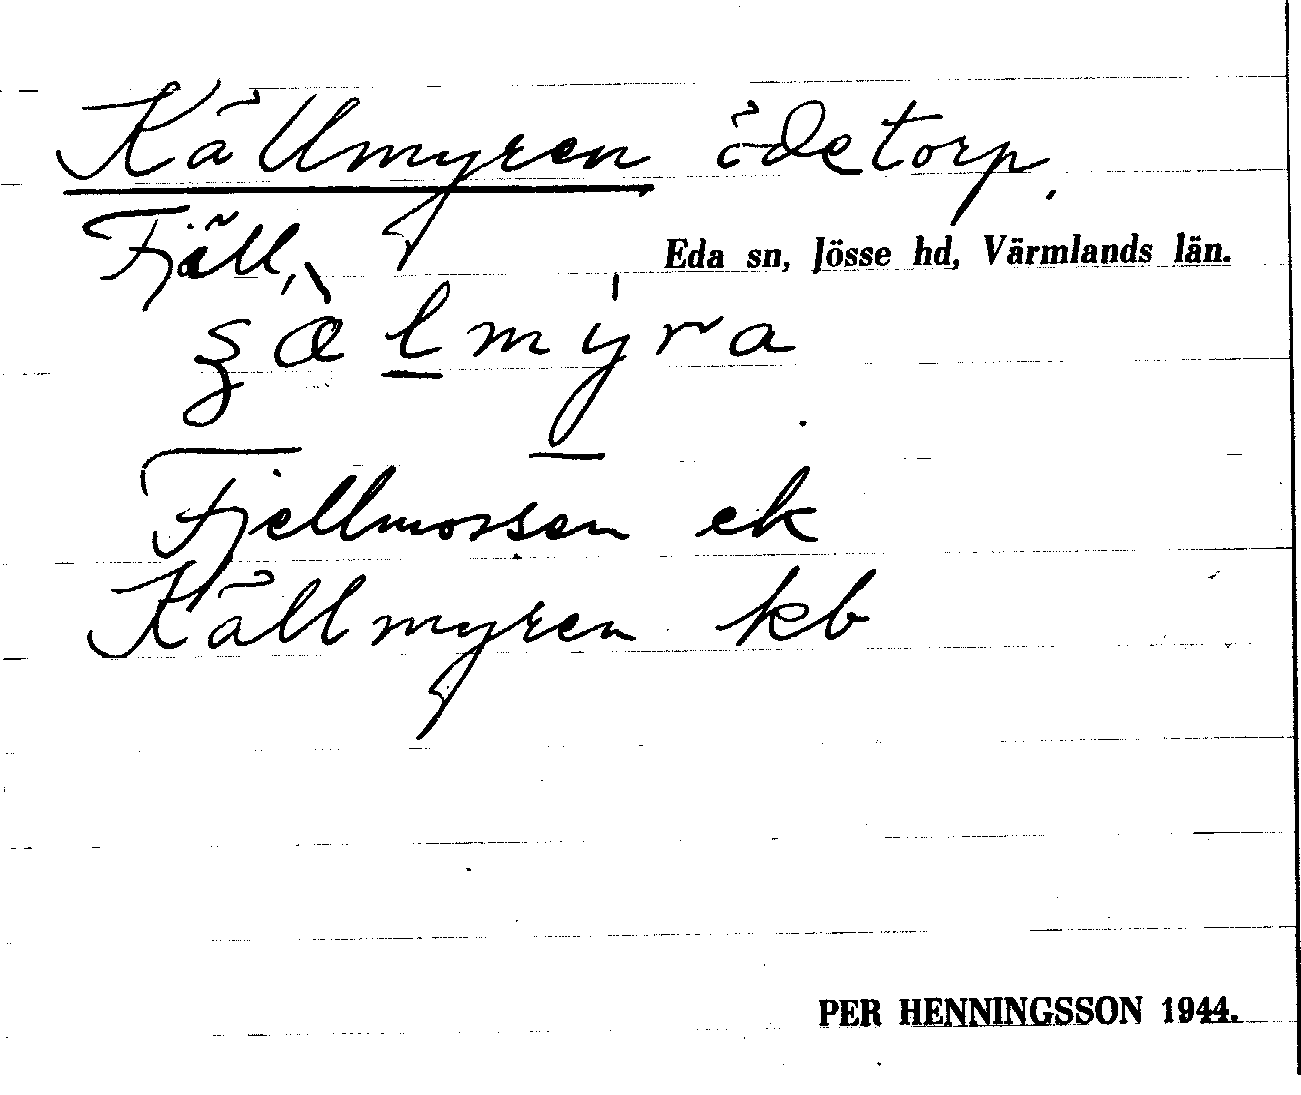 Källmyren ödetorp.
Fjäll, Eda sn, Jösse hd, Värmlands län.
Fjellmossen ek
Källmyren kb
PER HENNINGSSON 1944.